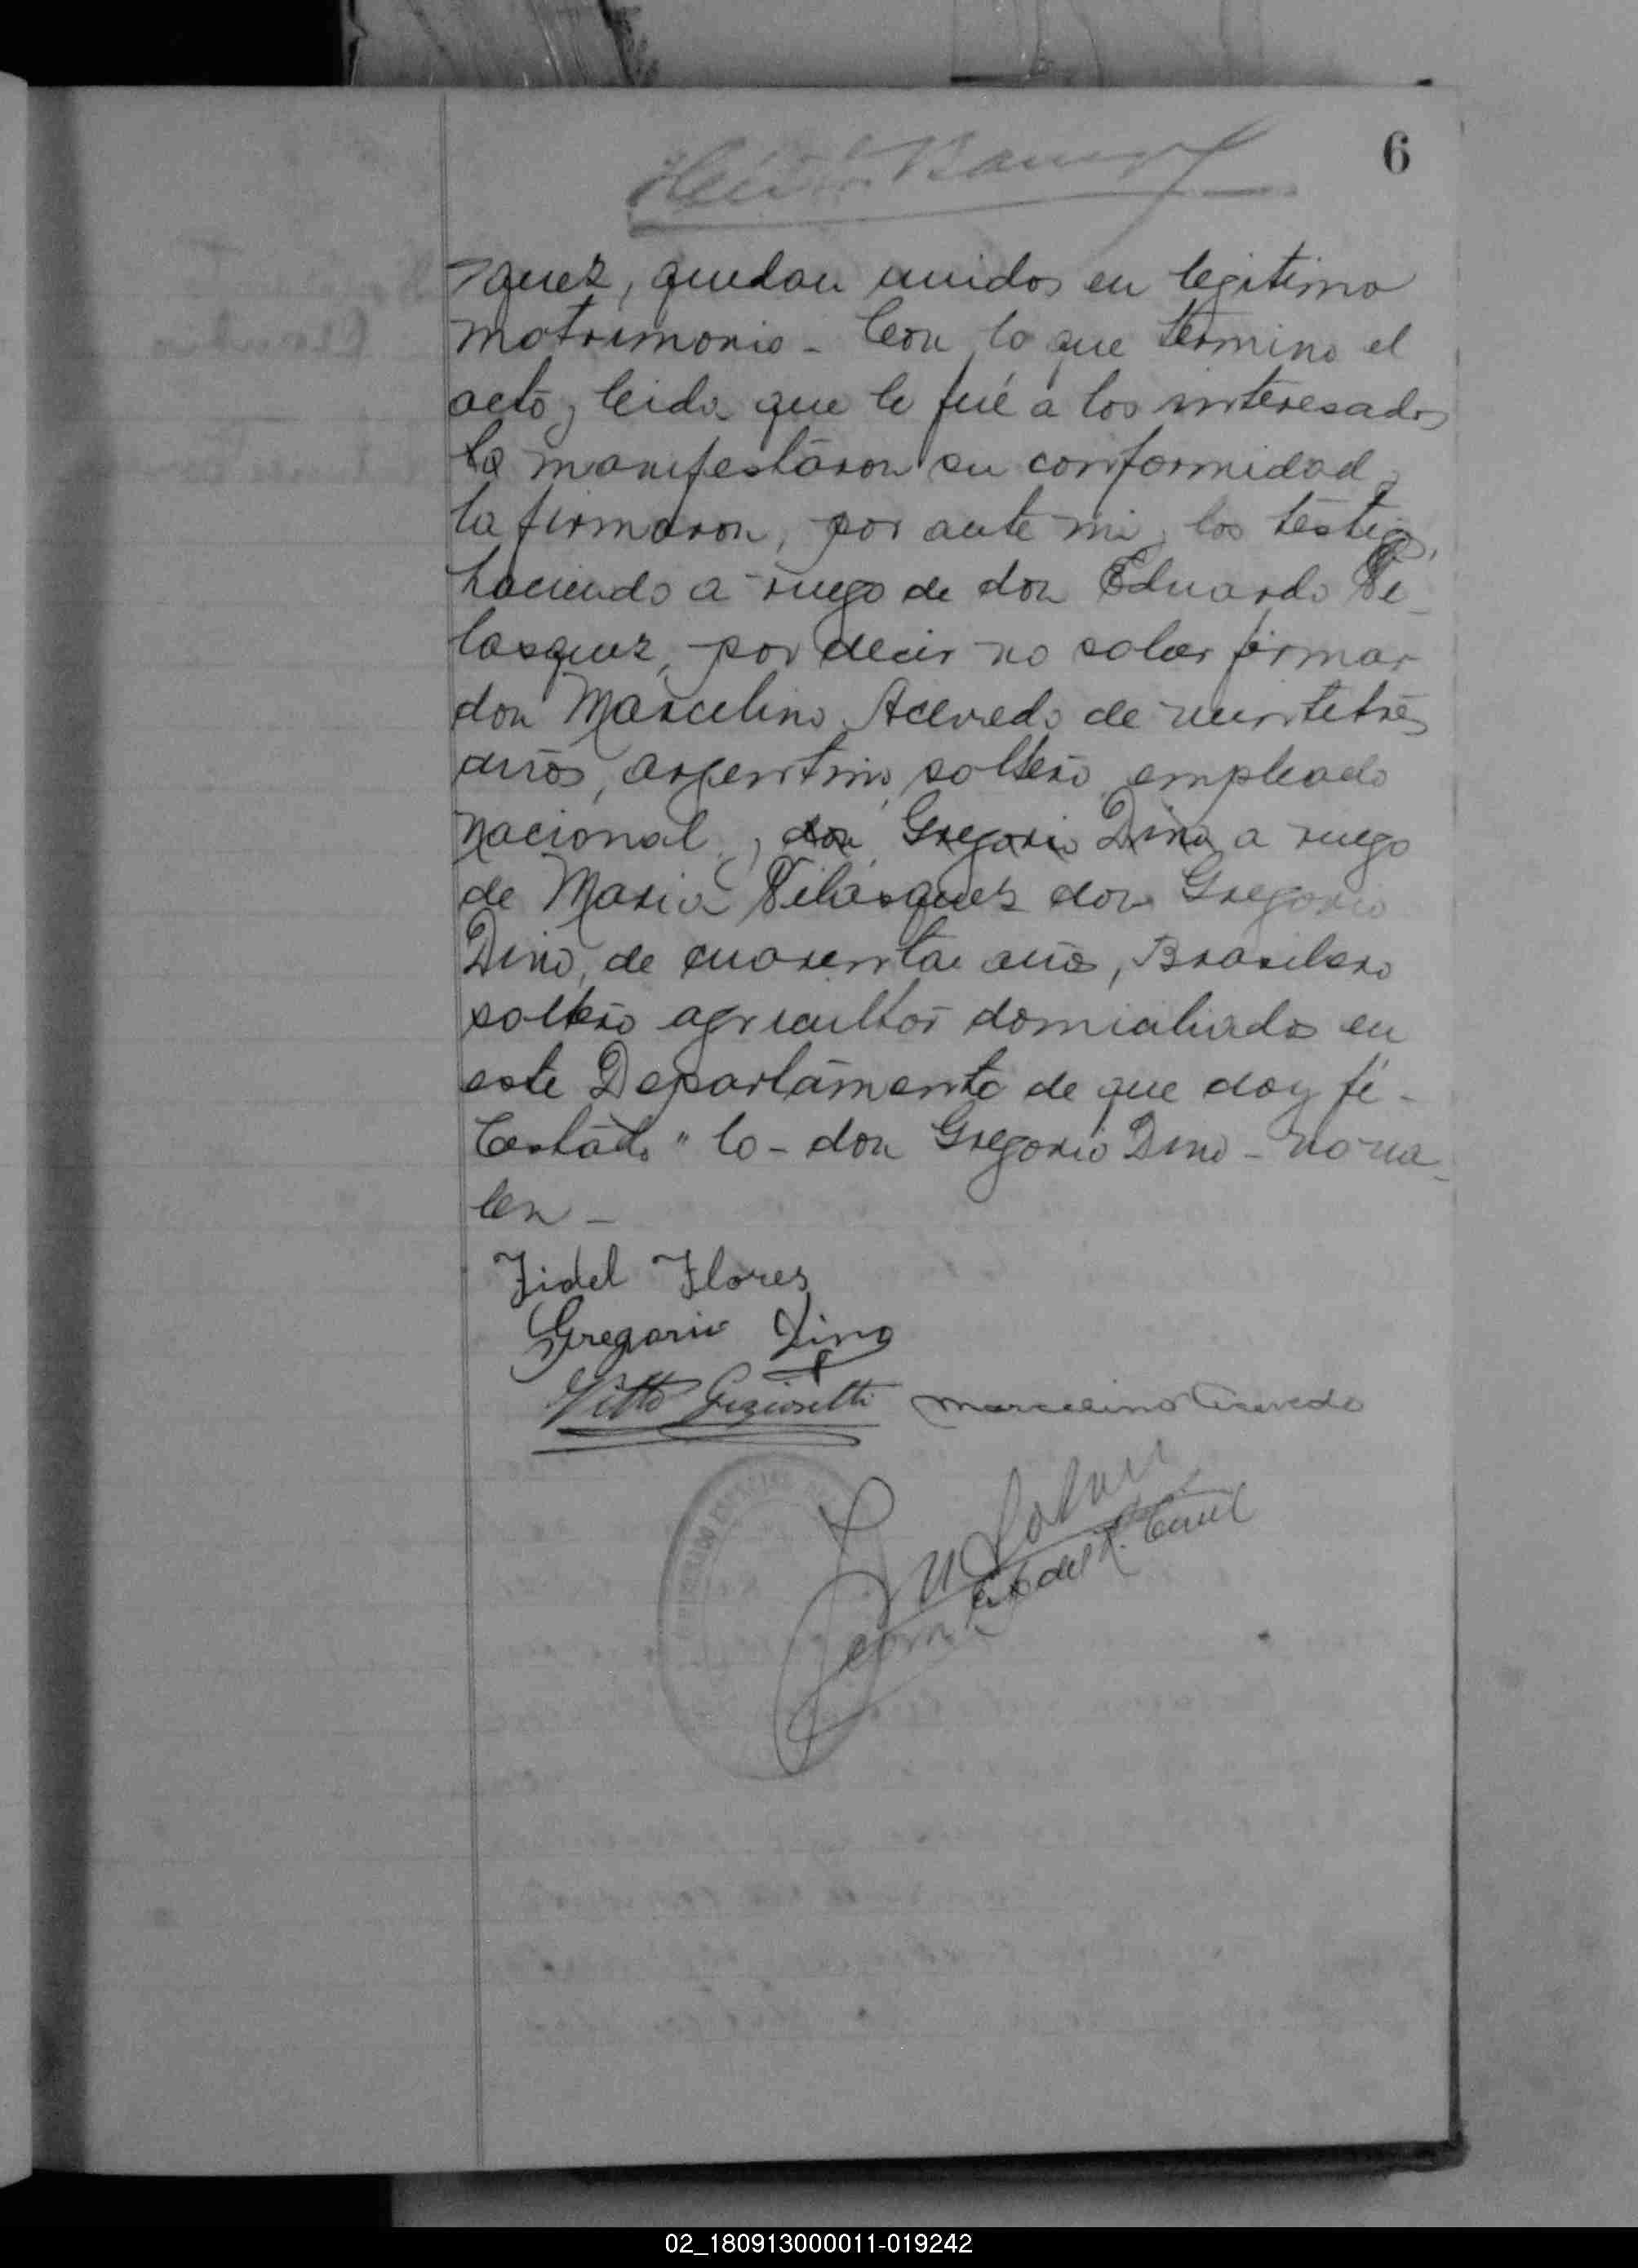 6
quez, quedan unidos en legitimo
matrimonio - Con lo que termino el
acto, leida que le fué a los interesados
lo manifestaron su conformidad,
la firmaron, por ante mi, los testigos,
haciendo a ruego de don Eduardo Ve-
lasquez, por decir no saber firmar
don Marcelino Acevedo de veintitres
años, argentino, soltero, empleado
nacional, don Gregorio Dino a ruego
de Maria Velasquez don Gregorio
Dino, de cuarenta años, Brasilero
soltero agricultor domiciliados en
este Departamento de que doy fé -
Testado " lo - don Gregorio Dino - no va-
len -
Fidel Flores
Gregorio Dino
Marcelino Acevedo
del R. Civil
02_180913000011-019242